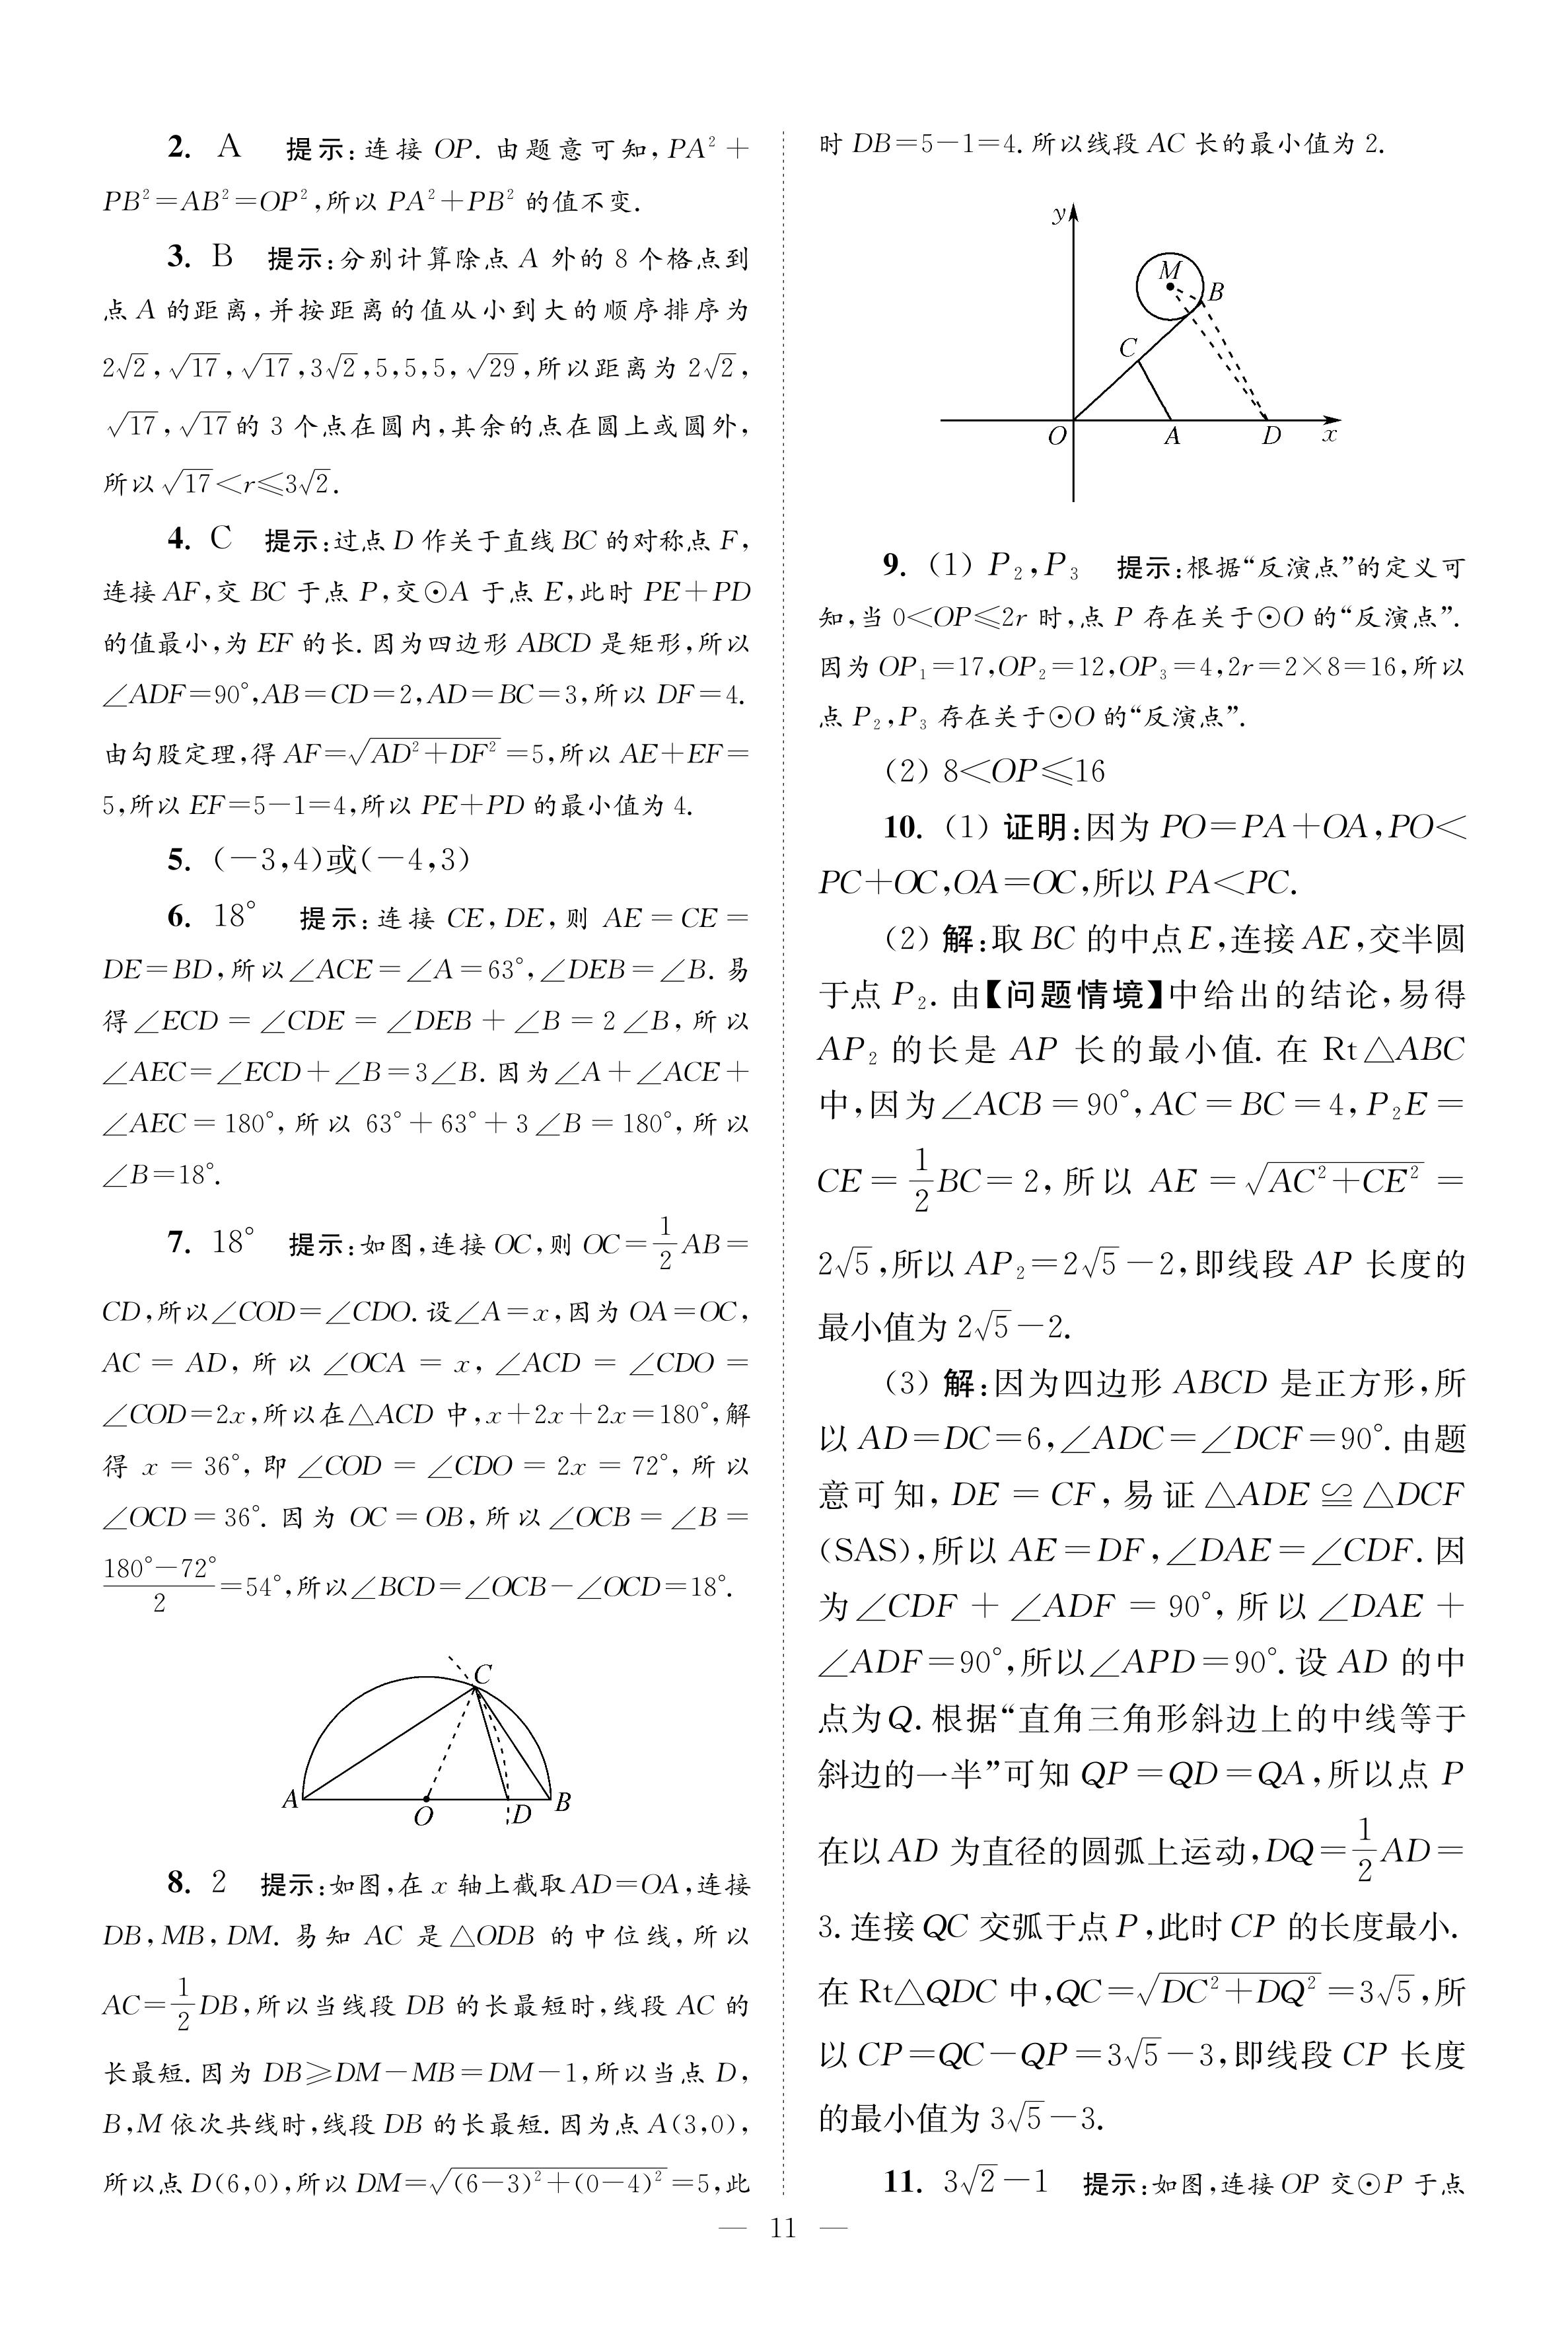 2. A 提示:连接 OP. 由题意可知, PA²+
PB²=AB²=OP²,所以 PA²+PB² 的值不变.
3. B 提示:分别计算除点 A 外的 8 个格点到
点 A 的距离,并按距离的值从小到大的顺序排序为
2√2,√17,√17,3√2,5,5,5,√29,所以距离为 2√2,
√17,√17的 3 个点在圆内,其余的点在圆上或圆外,
所以√17<r≤3√2.
4. C 提示:过点 D 作关于直线 BC 的对称点 F,
连接 AF,交 BC 于点 P,交⊙A 于点 E,此时 PE+PD
的值最小,为 EF 的长. 因为四边形 ABCD 是矩形,所以
∠ADF=90°,AB=CD=2,AD=BC=3,所以 DF=4.
由勾股定理,得 AF=√(AD²+DF²)=5,所以 AE+EF=
5,所以 EF=5-1=4,所以 PE+PD 的最小值为 4.
5. (-3,4)或(-4,3)
6. 18° 提示:连接 CE,DE,则 AE=CE=
DE=BD,所以∠ACE=∠A=63°,∠DEB=∠B. 易
得∠ECD=∠CDE=∠DEB+∠B=2∠B,所以
∠AEC=∠ECD+∠B=3∠B. 因为∠A+∠ACE+
∠AEC=180°,所以 63°+63°+3∠B=180°,所以
∠B=18°.
7. 18° 提示:如图,连接 OC,则 OC=1/2AB=
CD,所以∠COD=∠CDO. 设∠A=x,因为 OA=OC,
AC=AD,所以∠OCA=x,∠ACD=∠CDO=
∠COD=2x,所以在△ACD 中,x+2x+2x=180°,解
得 x=36°,即∠COD=∠CDO=2x=72°,所以
∠OCD=36°. 因为 OC=OB,所以∠OCB=∠B=
(180°-72°)/2=54°,所以∠BCD=∠OCB-∠OCD=18°.
C
A
O
D
B
8. 2 提示:如图,在 x 轴上截取 AD=OA,连接
DB,MB,DM. 易知 AC 是△ODB 的中位线,所以
AC=1/2DB,所以当线段 DB 的长最短时,线段 AC 的
长最短. 因为 DB≥DM-MB=DM-1,所以当点 D,
B,M 依次共线时,线段 DB 的长最短. 因为点 A(3,0),
所以点 D(6,0),所以 DM=√((6-3)²+(0-4)²)=5,此
时 DB=5-1=4. 所以线段 AC 长的最小值为 2.
y
M
B
C
O
A
D
x
9. (1) P₂,P₃ 提示:根据“反演点”的定义可
知,当 0<OP≤2r 时,点 P 存在关于⊙O 的“反演点”.
因为 OP₁=17,OP₂=12,OP₃=4,2r=2×8=16,所以
点 P₂,P₃ 存在关于⊙O 的“反演点”.
(2) 8<OP≤16
10. (1) 证明:因为 PO=PA+OA,PO<
PC+OC,OA=OC,所以 PA<PC.
(2) 解:取 BC 的中点 E,连接 AE,交半圆
于点 P₂. 由【问题情境】中给出的结论,易得
AP₂ 的长是 AP 长的最小值. 在 Rt△ABC
中,因为∠ACB=90°,AC=BC=4,P₂E=
CE=1/2BC=2,所以 AE=√(AC²+CE²)=
2√5,所以 AP₂=2√5-2,即线段 AP 长度的
最小值为 2√5-2.
(3) 解:因为四边形 ABCD 是正方形,所
以 AD=DC=6,∠ADC=∠DCF=90°. 由题
意可知,DE=CF,易证△ADE≌△DCF
(SAS),所以 AE=DF,∠DAE=∠CDF. 因
为∠CDF+∠ADF=90°,所以∠DAE+
∠ADF=90°,所以∠APD=90°. 设 AD 的中
点为Q. 根据“直角三角形斜边上的中线等于
斜边的一半”可知 QP=QD=QA,所以点 P
在以 AD 为直径的圆弧上运动,DQ=1/2AD=
3. 连接 QC 交弧于点 P,此时 CP 的长度最小.
在 Rt△QDC 中,QC=√(DC²+DQ²)=3√5,所
以 CP=QC-QP=3√5-3,即线段 CP 长度
的最小值为 3√5-3.
11. 3√2-1 提示:如图,连接 OP 交⊙P 于点
— 11 —